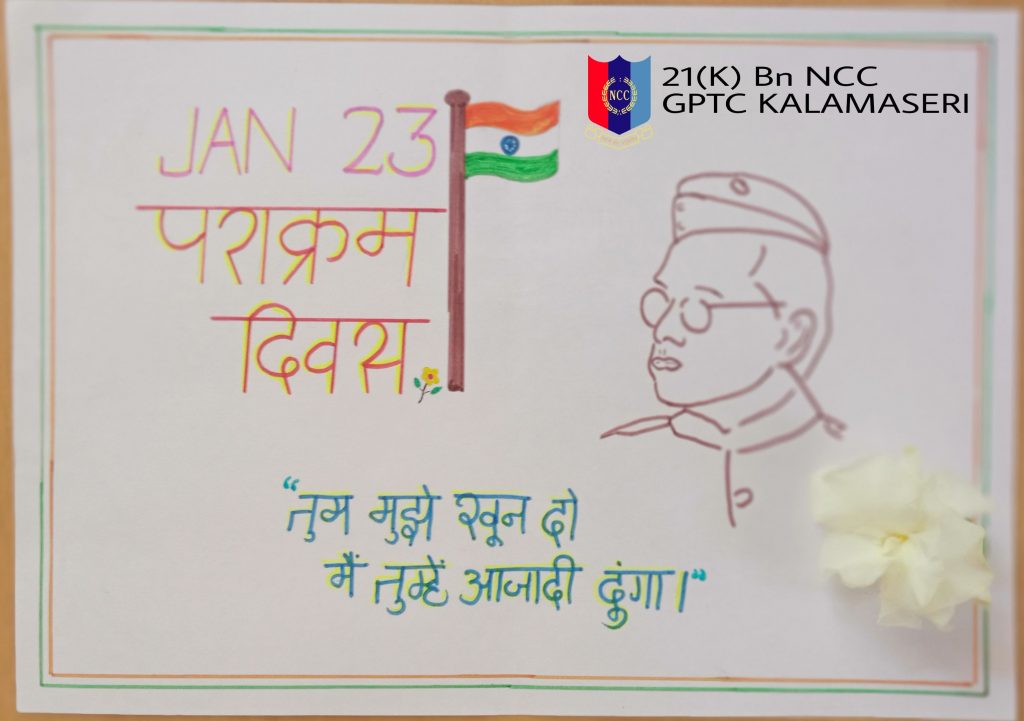 JAN 23
पराक्रम
दिवस
NCC
21(K) Bn NCC
GPTC KALAMASERI
"तुम मुझे खून दो
मैं तुम्हें आजादी दुंगा।"